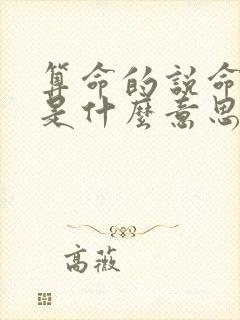 算命的説命
是什麼意思
高薇